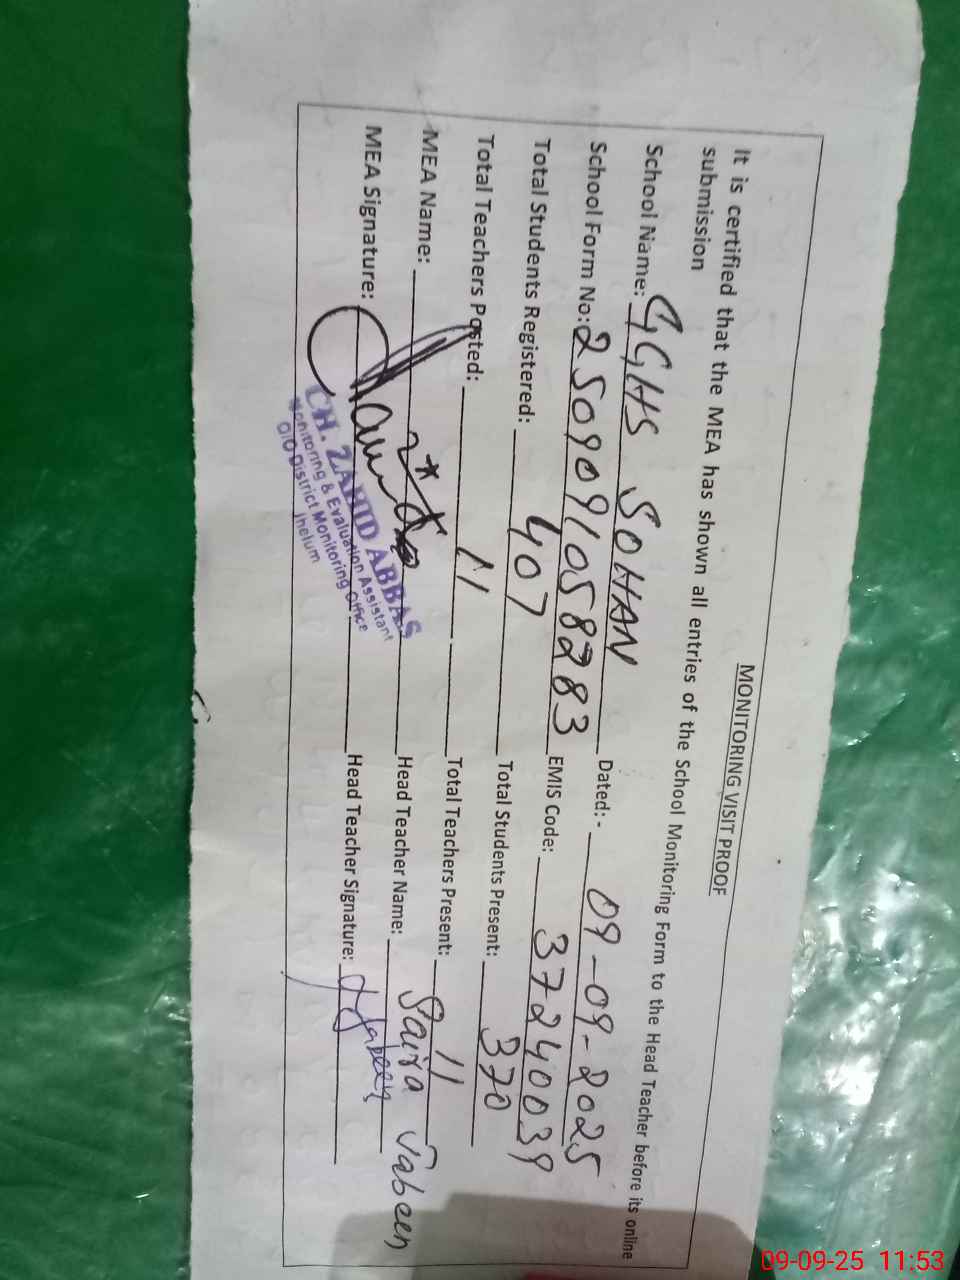 MONITORING VISIT PROOF
It is certified that the MEA has shown all entries of the School Monitoring Form to the Head Teacher before its online
submission
School Name: GGHS SOHAN Dated:- 09-09-2025
School Form No: 2509091058283 EMIS Code: 37240039
Total Students Registered: 407 Total Students Present: 370
Total Teachers Posted: 11 Total Teachers Present: 11
MEA Name: Head Teacher Name: Saira Jabeen
MEA Signature: Head Teacher Signature: Jabeen
CH. ZAHID ABBAS
Monitoring & Evaluation Assistant
O/O District Monitoring Office
Jhelum
09-09-25 11:53